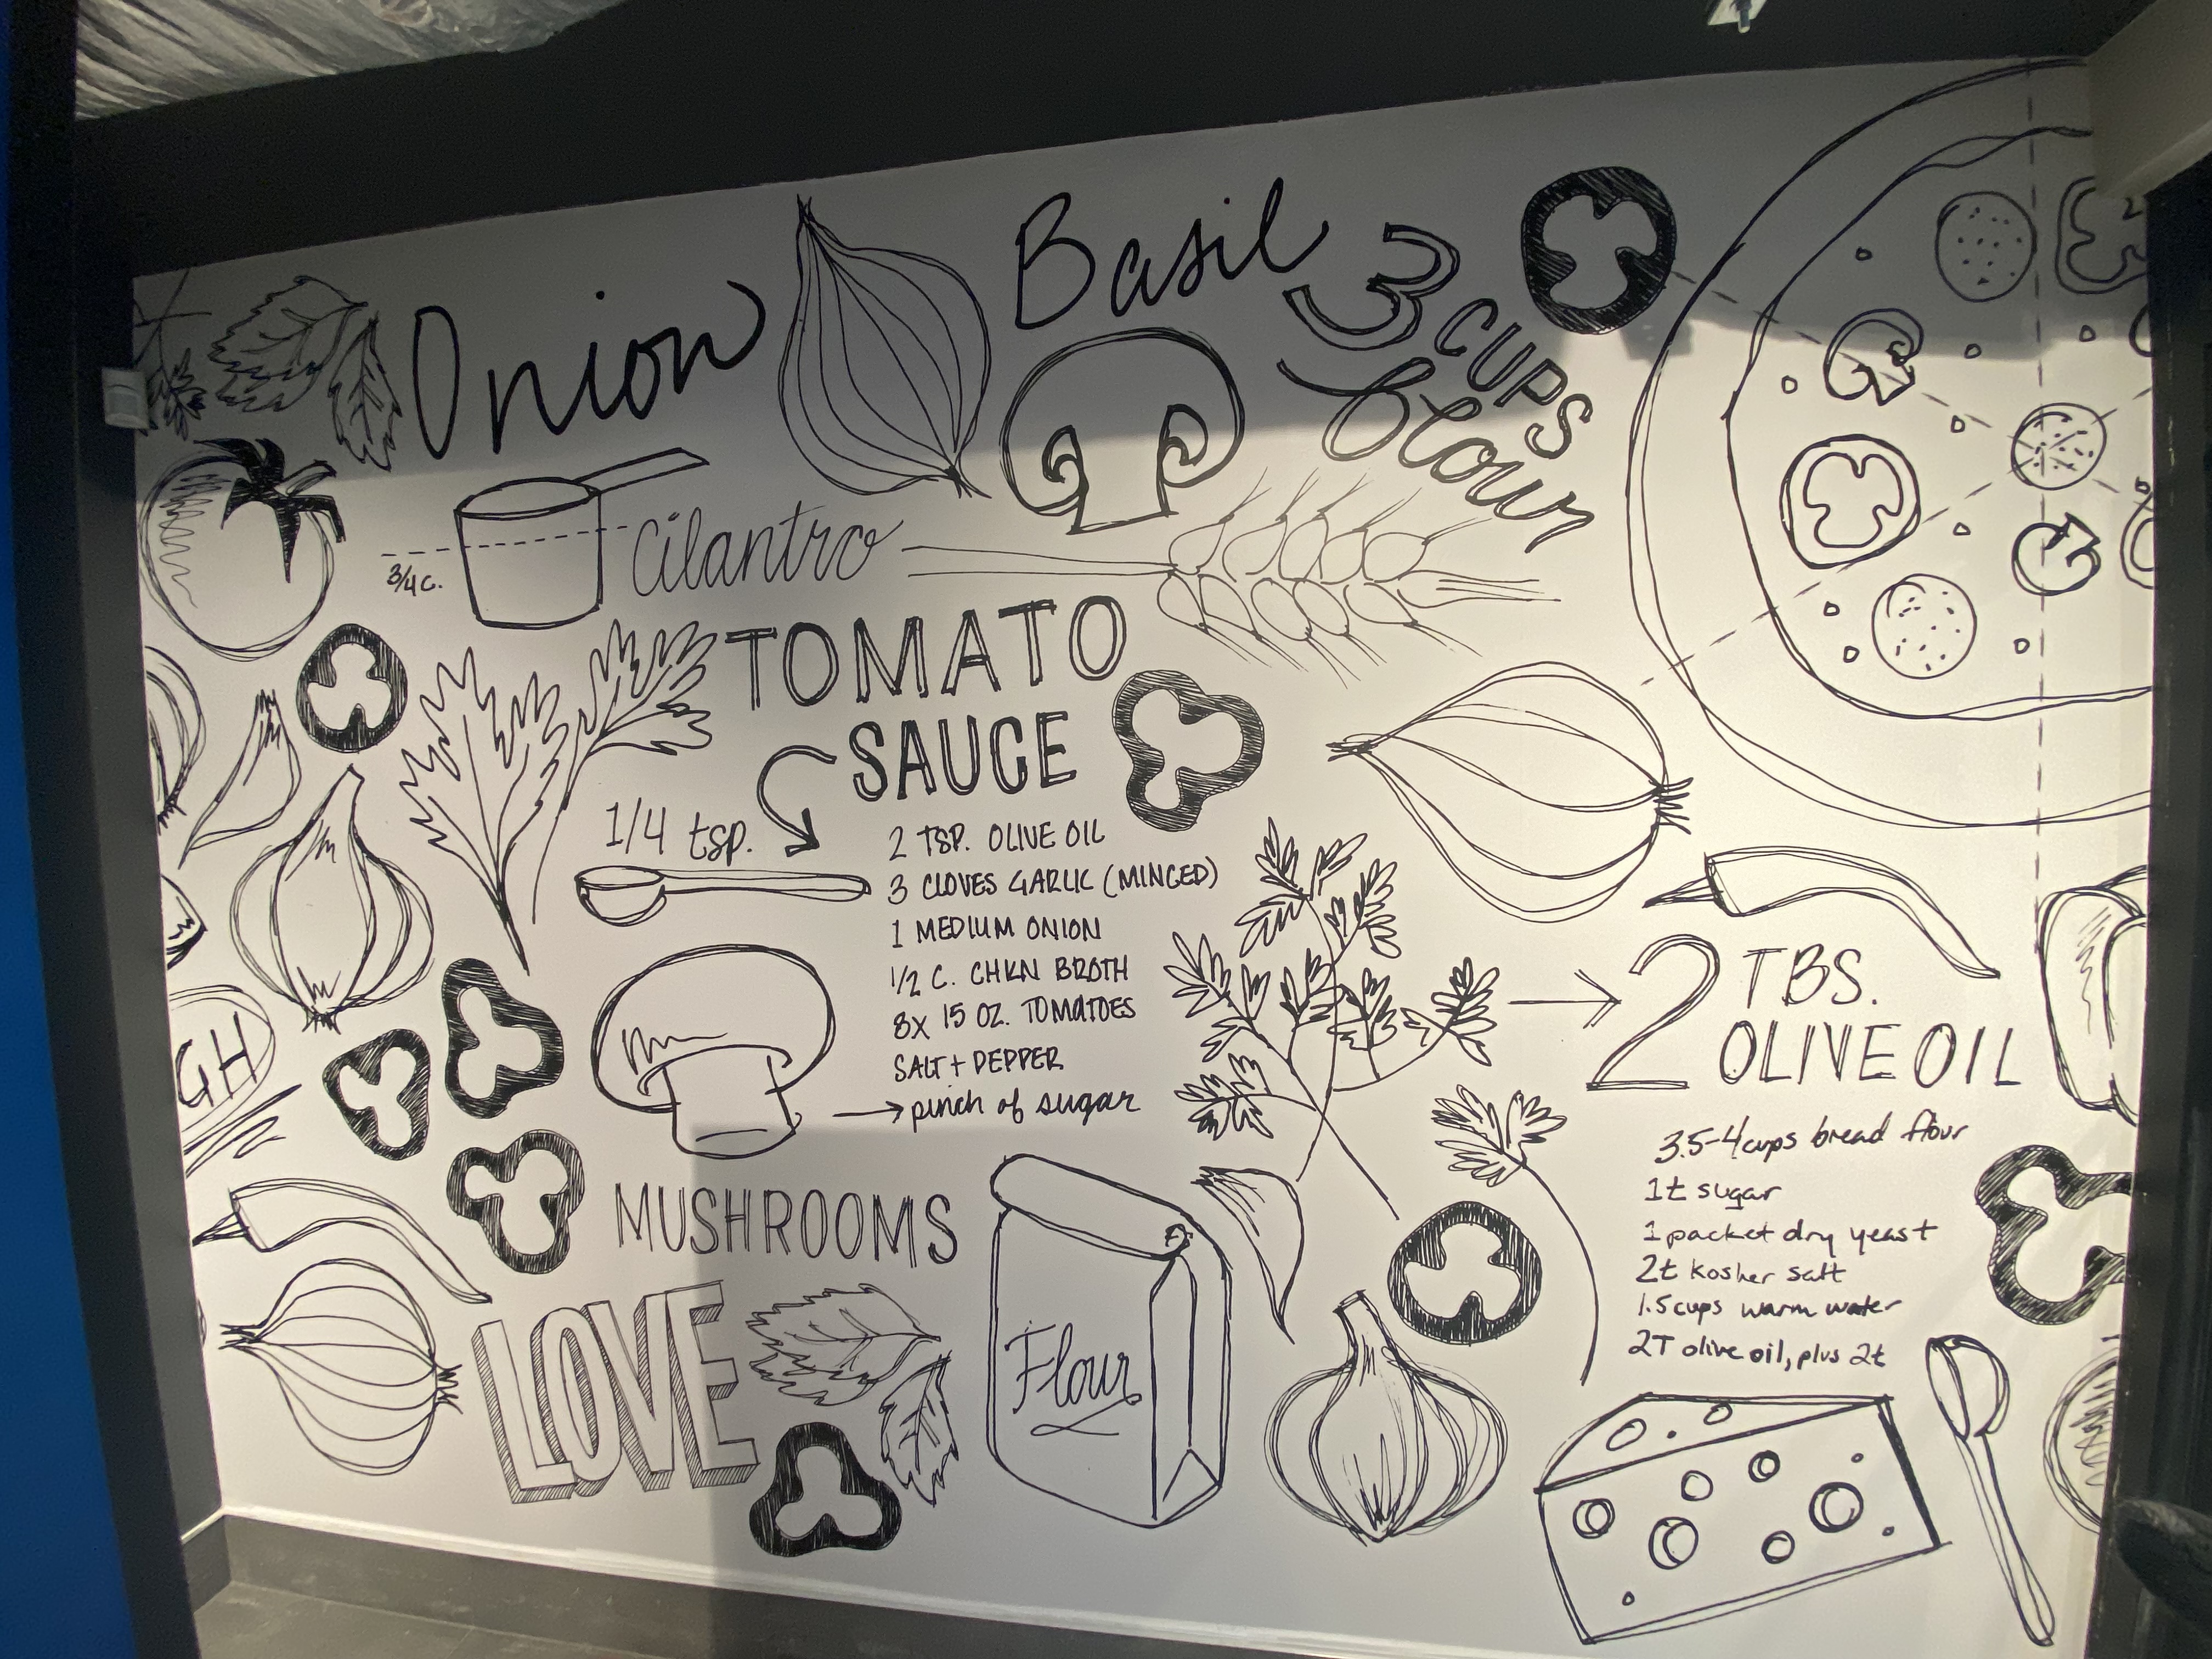 Onion
Basil
3
CUPS
flour
3/4 c.
Cilantro
TOMATO
SAUCE
1/4 tsp.
2 TSP. OLIVE OIL
3 CLOVES GARLIC (MINCED)
1 MEDIUM ONION
1/2 C. CHKN BROTH
8X 15 OZ. TOMATOES
SALT + PEPPER
pinch of sugar
2 TBS.
OLIVE OIL
GH
3.5-4 cups bread flour
1t sugar
1 packet dry yeast
2t kosher salt
1.5 cups warm water
2T olive oil, plus 2t
MUSHROOMS
LOVE
Flour